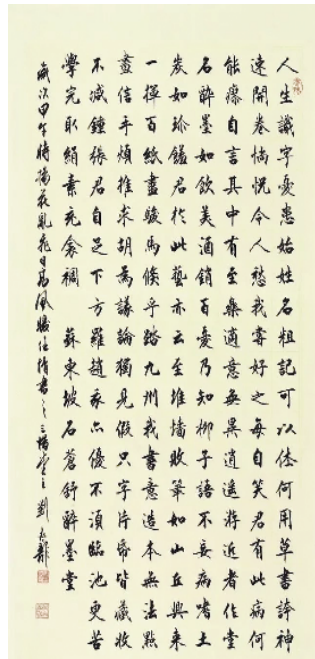 人生識字憂患始姓名粗記可以休何用草書誇神
速開卷惝怳令人愁我嘗好之每自笑君有此病何
能瘳自言其中有至樂適意無異逍遙游近者作堂
名醉墨如飲美酒銷百憂乃知柳子語不妄病嗜土
炭如珍饈君於此藝亦云至堆墻敗筆如山丘興來
一揮百紙盡駿馬倏乎踏九州我書意造本無法點
畫信手煩推求胡為議論獨見假只字片紙皆藏收
不減鍾張君自足下方羅趙我亦優不須臨池更苦
學完取絹素充衾裯 蘇東坡石蒼舒醉墨堂
歲次甲午時楊花亂飛日高風暖書之三楊堂主劉